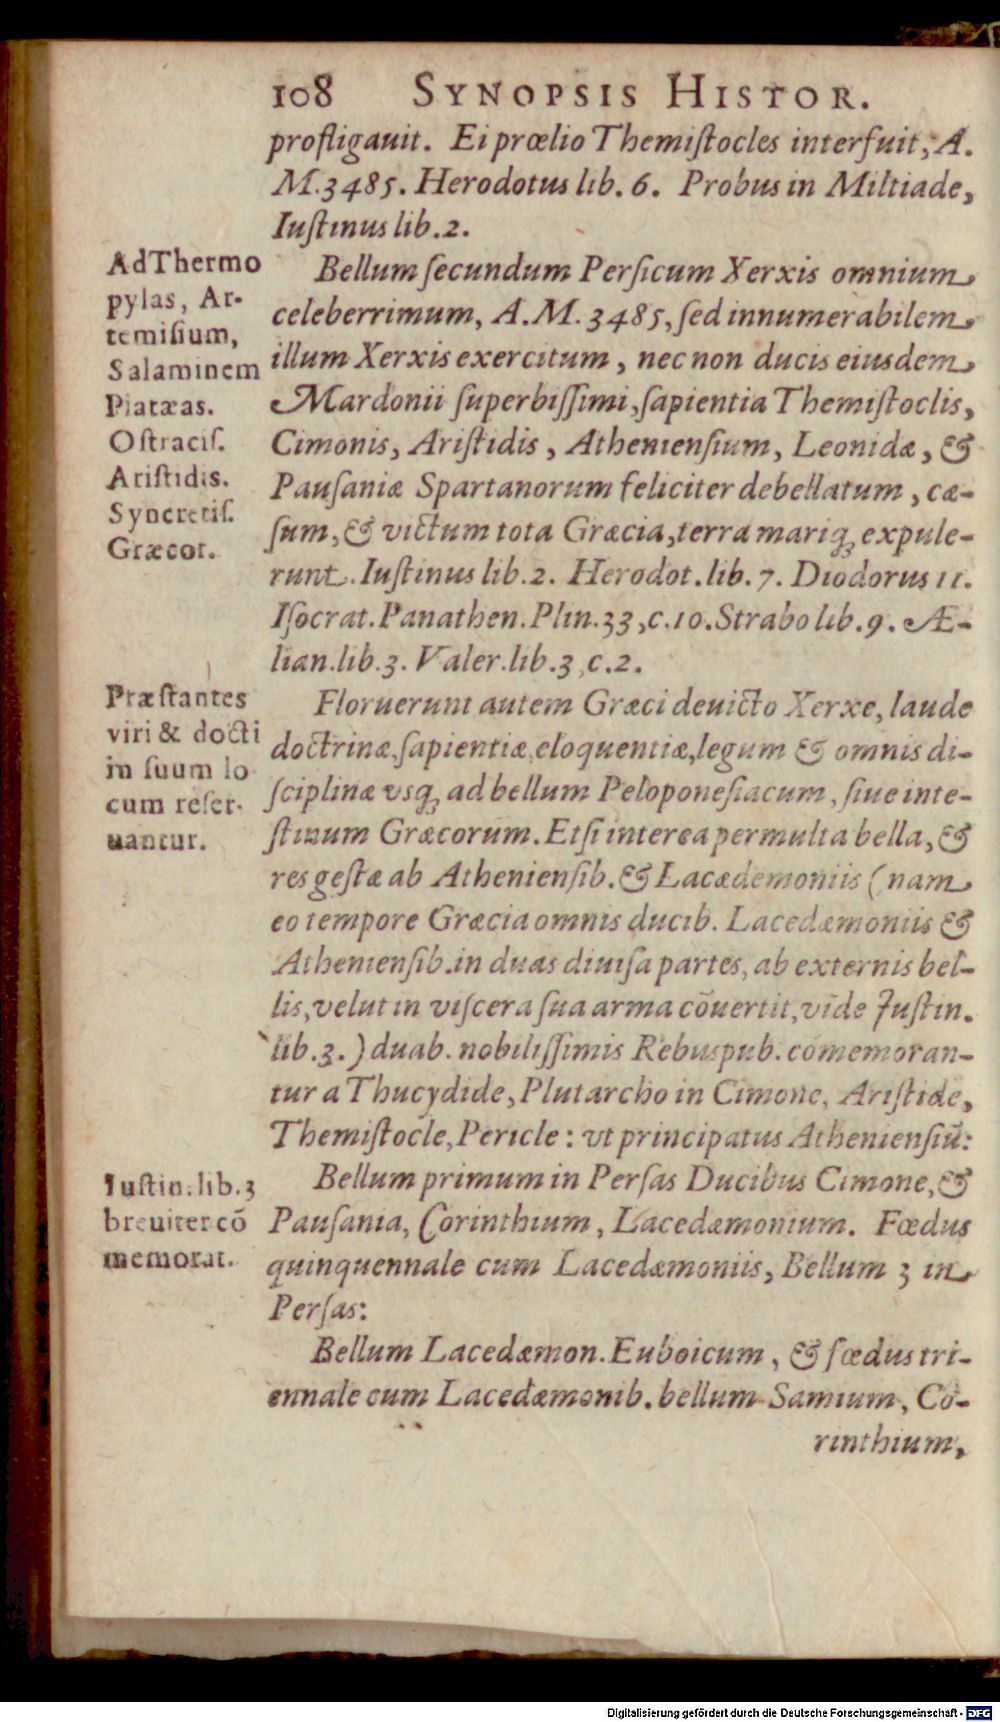 108 SYNOPSIS HISTOR.
profligauit. Ei prœlio Themiſtocles interfuit, A.
M. 3485. Herodotus lib. 6. Probus in Miltiade,
Iuſtinus lib. 2.
Ad Thermo
pylas, Ar-
temiſium,
Salaminem
Platæas.
Oſtraciſ.
Ariſtidis.
Syncretiſ.
Græcor.
Bellum ſecundum Perſicum Xerxis omnium
celeberrimum, A. M. 3485, ſed innumerabilem
illum Xerxis exercitum, nec non ducis eiusdem
Mardonii ſuperbiſſimi, ſapientia Themiſtoclis,
Cimonis, Ariſtidis, Athenienſium, Leonidæ, &
Pauſaniæ Spartanorum feliciter debellatum, cæ-
ſum, & victum tota Græcia, terra mariq; expule-
runt. Iuſtinus lib. 2. Herodot. lib. 7. Diodorus 11.
Iſocrat. Panathen. Plin. 33, c. 10. Strabo lib. 9. Æ-
lian. lib. 3. Valer. lib. 3, c. 2.
Præſtantes
viri & docti
in ſuum lo
cum reſer-
uantur.
Floruerunt autem Græci deuicto Xerxe, laude
doctrinæ, ſapientiæ, eloquentiæ, legum & omnis di-
ſciplinæ vsq; ad bellum Peloponeſiacum, ſiue inte-
ſtinum Græcorum. Etſi interea permulta bella, &
res geſtæ ab Athenienſib. & Lacædemoniis (nam
eo tempore Græcia omnis ducib. Lacedæmoniis &
Athenienſib. in duas diuiſa partes, ab externis bel-
lis, velut in viſcera ſua arma cōuertit, vide Juſtin.
lib. 3.) duab. nobiliſſimis Rebuspub. cōmemoran-
tur a Thucydide, Plutarcho in Cimone, Ariſtide,
Themiſtocle, Pericle: vt principatus Athenienſiū:
Iuſtin. lib. 3
breuiter cō
memorat.
Bellum primum in Perſas Ducibus Cimone, &
Pauſania, Corinthium, Lacedæmonium. Fœdus
quinquennale cum Lacedæmoniis, Bellum 3 in
Perſas:
Bellum Lacedæmon. Euboicum, & fœdus tri-
ennale cum Lacedæmonib. bellum Samium, Co-
rinthium,
Digitalisierung gefördert durch die Deutsche Forschungsgemeinschaft - DFG